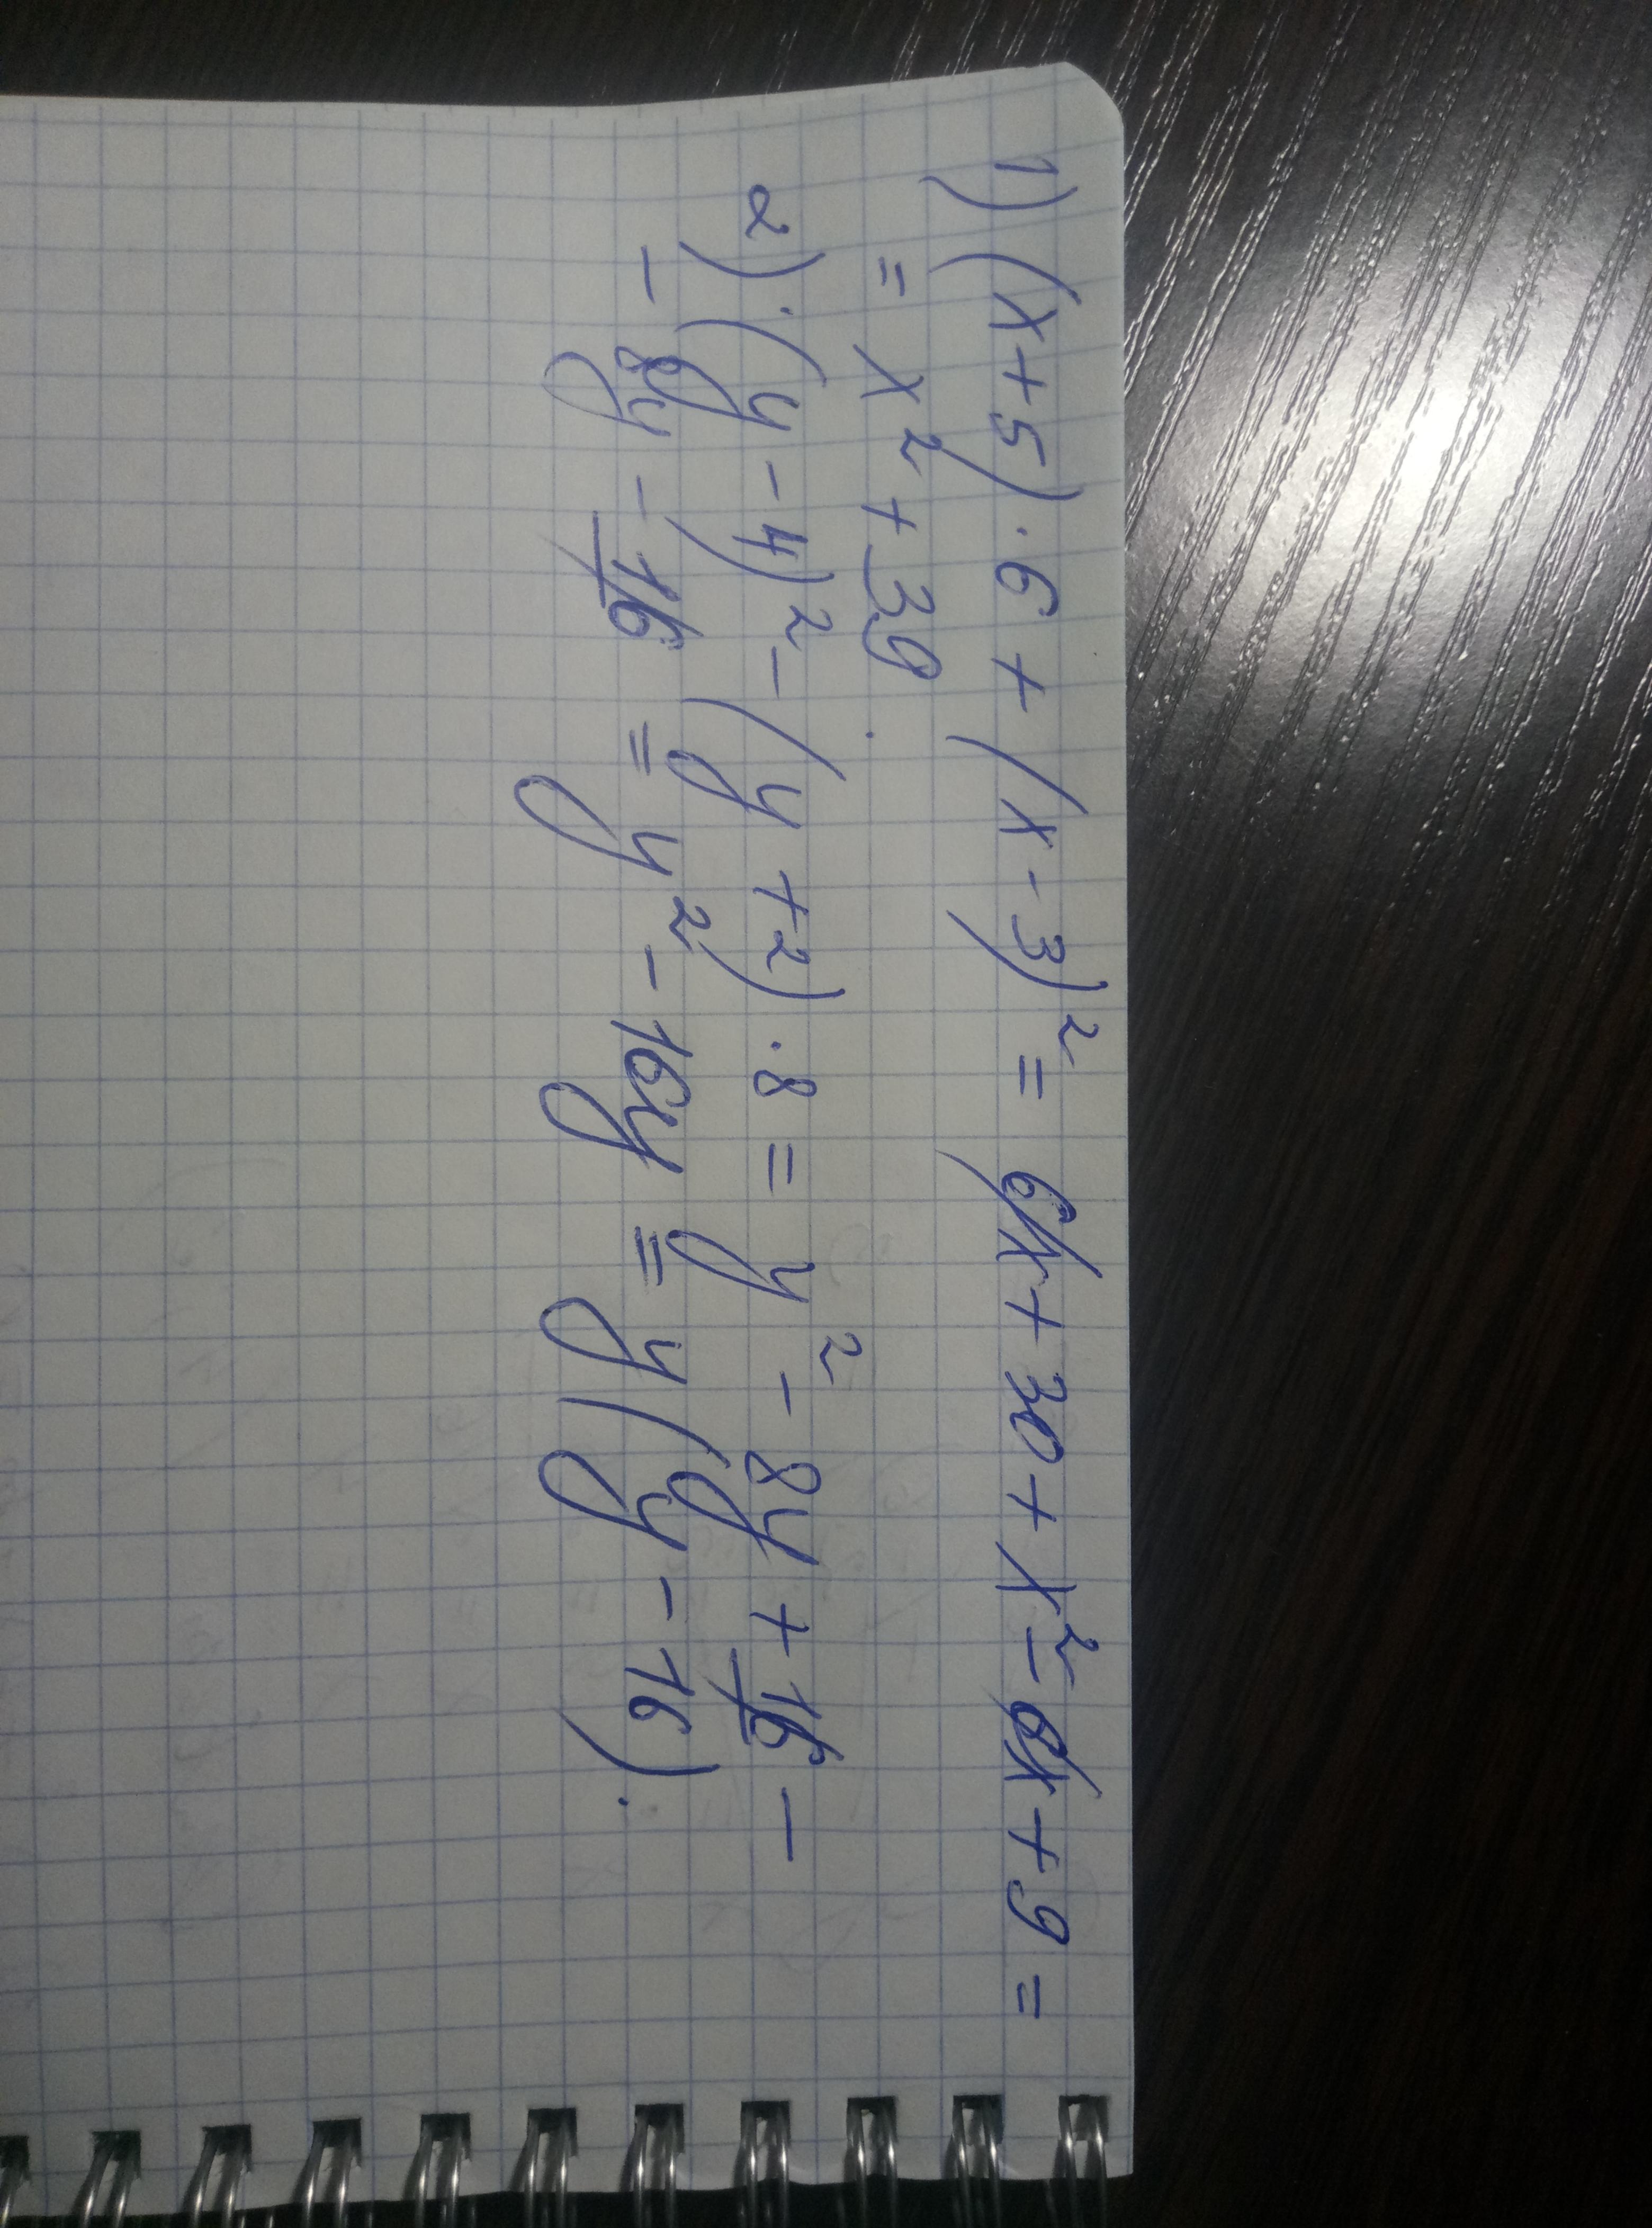 1) (x+5)·6 + (x-3)² = 6x + 30 + x² - 6x + 9 =
= x² + 39.
2) (y-4)² - (y+2)·8 = y² - 8y + 16 -
- 8y - 16 = y² - 16y = y(y-16).